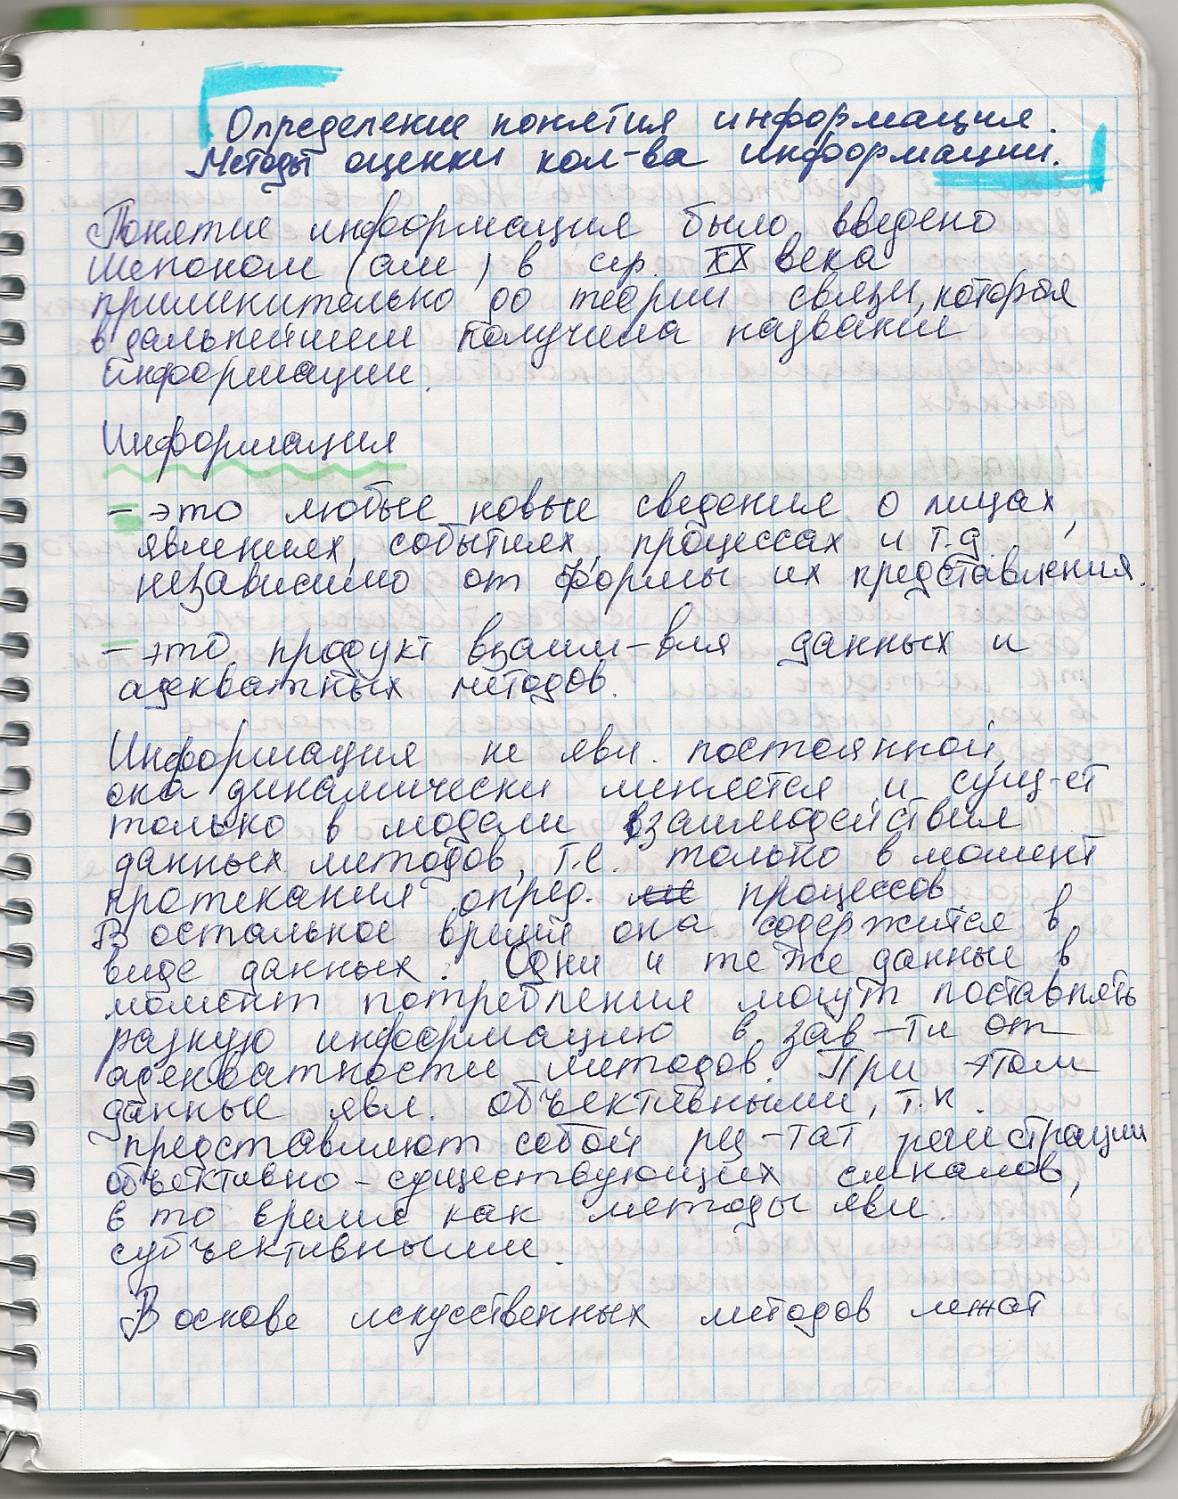 Определение понятия информация.
Методы оценки кол-ва информации.
Понятие информация было введено
Шеноном (ам ) в сер. XX века
применительно до теории связи, которая
в дальнейшем получила название
информации.
Информация
- это любые новые сведения о лицах,
явлениях, событиях, процессах и т.д.
независимо от формы их представления.
- это продукт взаим-вия данных и
адекватных методов.
Информация не явл. постоянной,
она динамически меняется и сущ-ет
только в модели взаимодействия
данных методов, т.е. только в момент
протекания опред. процессов
В остальное время она содержится в
виде данных. Одни и те же данные в
момент потребления могут поставлять
разную информацию в зав-ти от
адекватности методов. При этом
данные явл. объективными, т.к.
представляют собой рез-тат регистрации
объективно-существующих сигналов,
в то время как методы явл.
субъективными.
В основе искусственных методов лежат